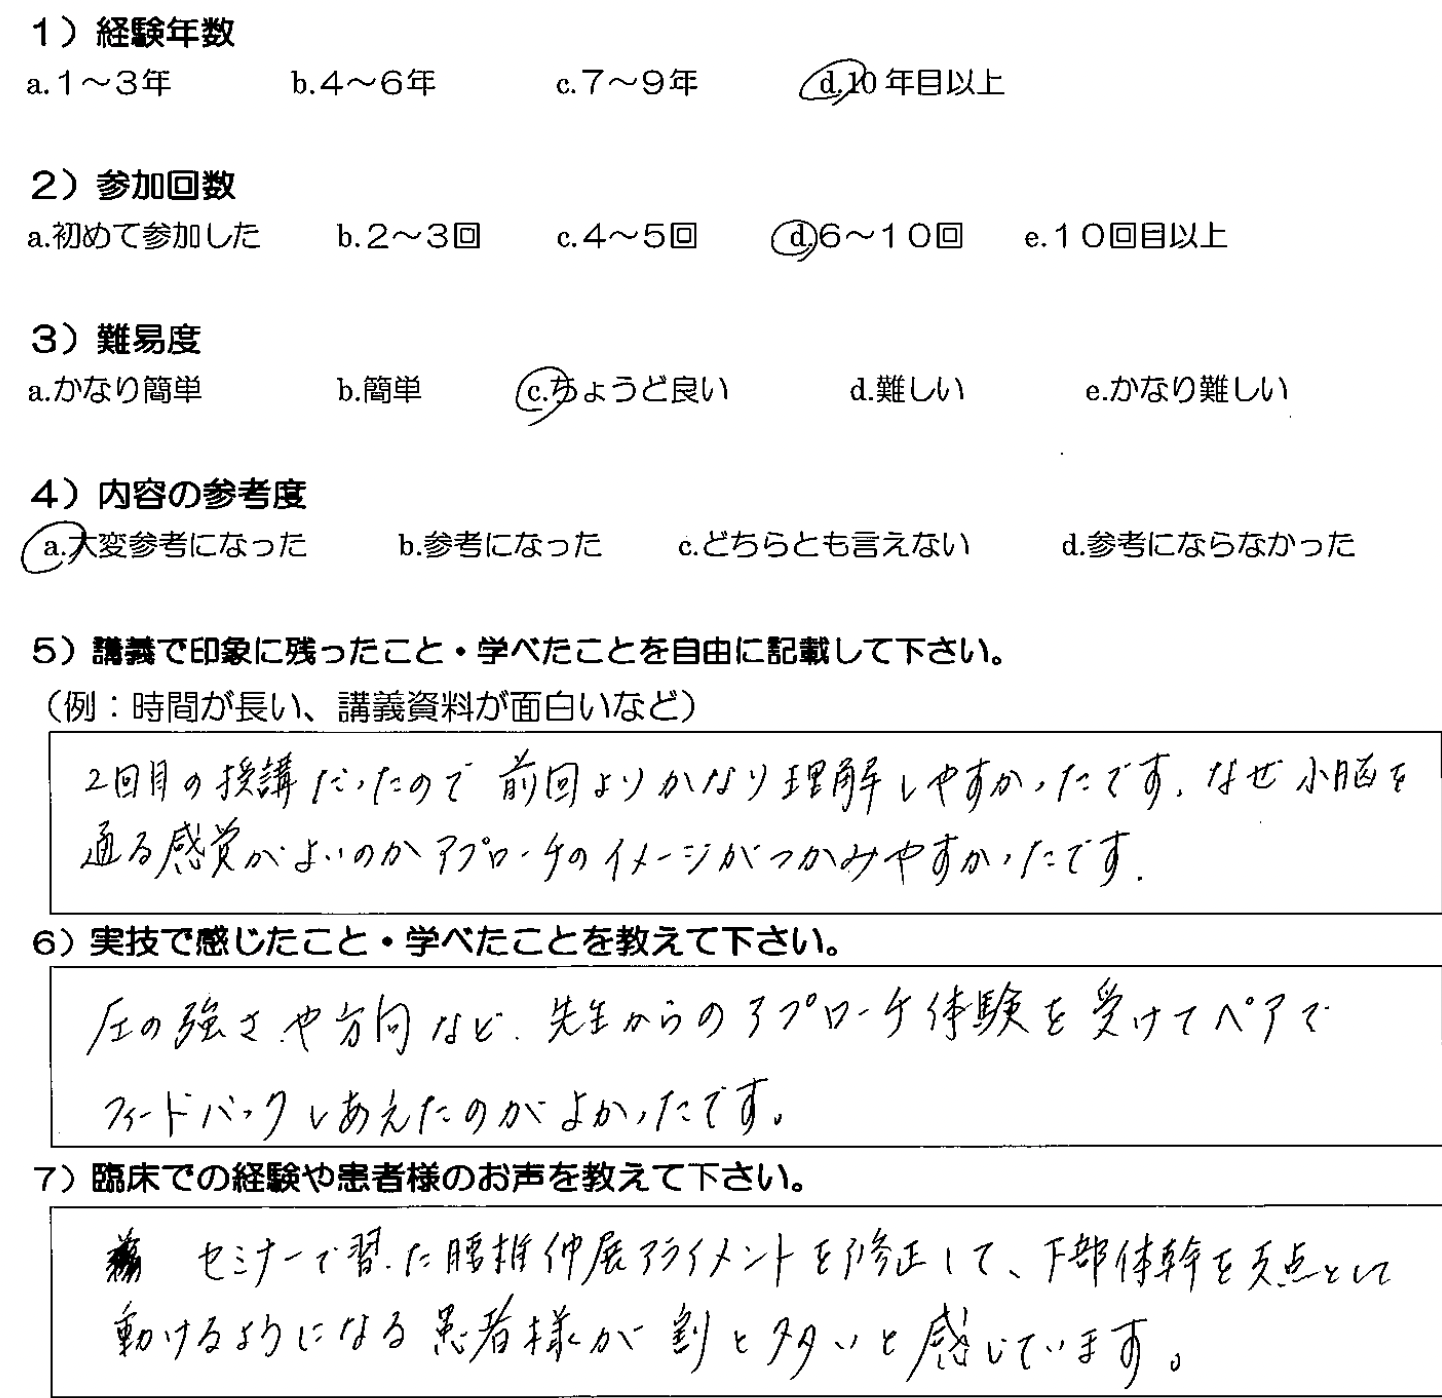 1）経験年数
a.1～3年 b.4～6年 c.7～9年 d.10年目以上
2）参加回数
a.初めて参加した b.2～3回 c.4～5回 d.6～10回 e.10回目以上
3）難易度
a.かなり簡単 b.簡単 c.ちょうど良い d.難しい e.かなり難しい
4）内容の参考度
a.大変参考になった b.参考になった c.どちらとも言えない d.参考にならなかった
5）講義で印象に残ったこと・学べたことを自由に記載して下さい。
（例：時間が長い、講義資料が面白いなど）
2回目の授講だったので前回よりかなり理解しやすかったです．なぜ小脳を
通る感覚がよいのかアプローチのイメージがつかみやすかったです．
6）実技で感じたこと・学べたことを教えて下さい。
圧の強さや方向など．先生からのアプローチ体験を受けてペアで
フィードバックしあえたのがよかったです。
7）臨床での経験や患者様のお声を教えて下さい。
セミナーで習った腰椎伸展アライメントを修正して、下部体幹を支点として
動けるようになる患者様が割と多いと感じています。